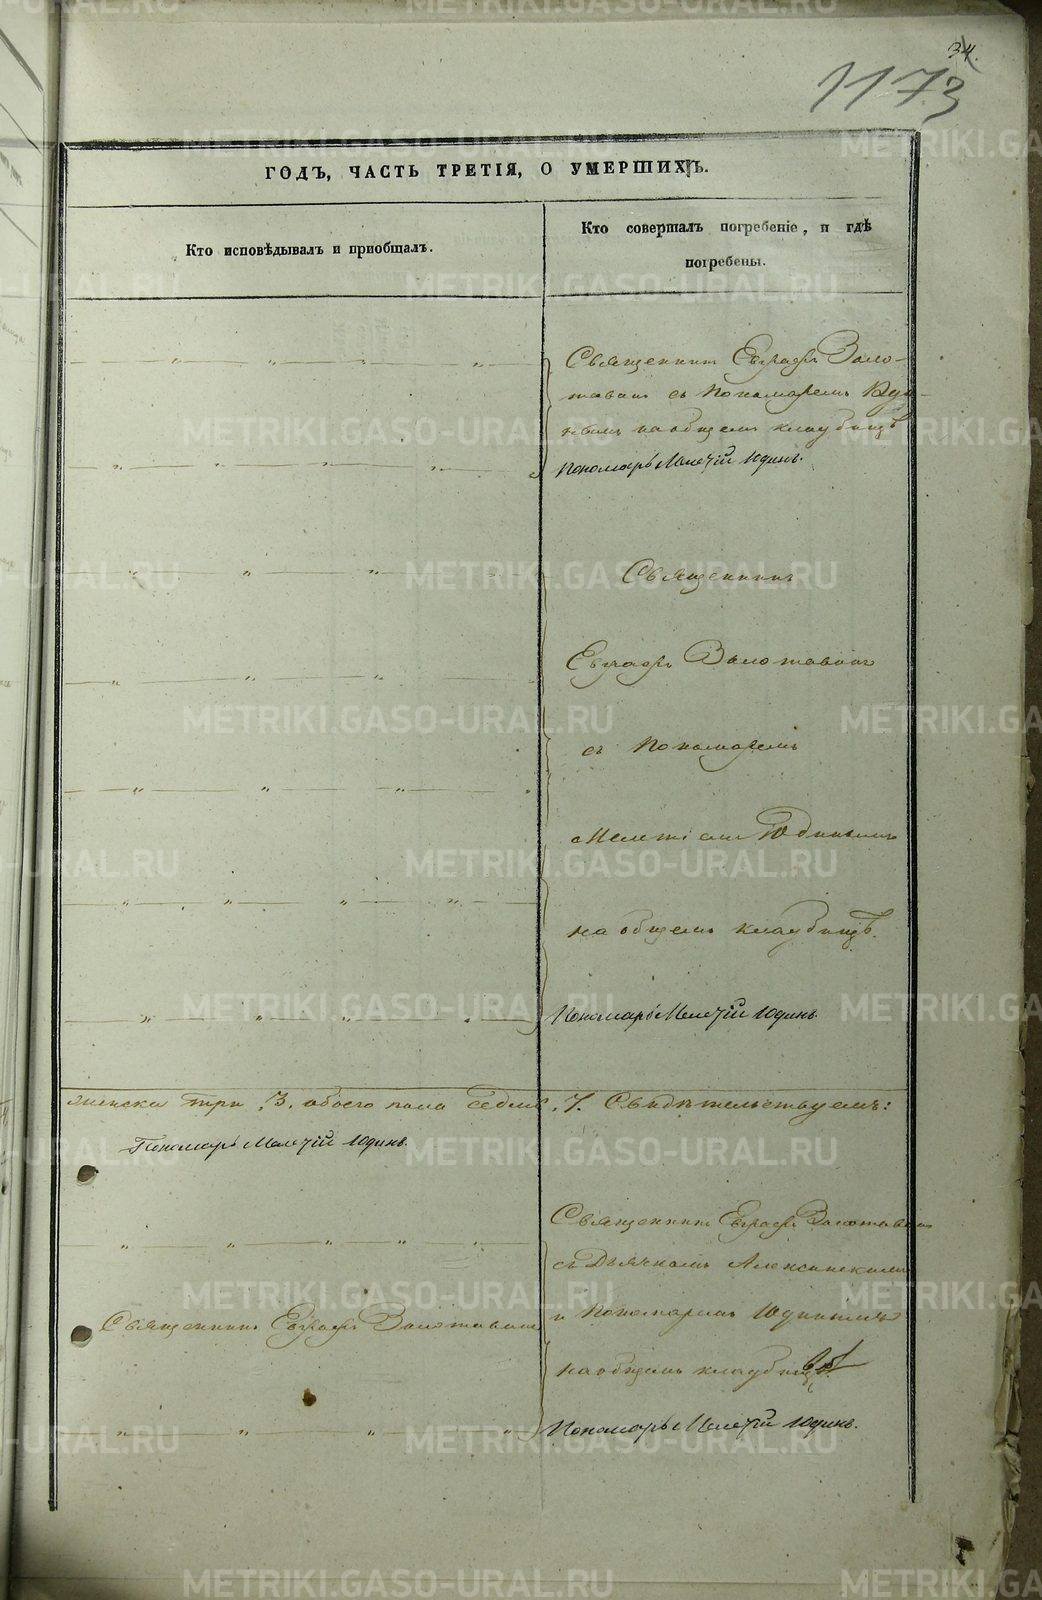 34.
1173
ГОДЪ, ЧАСТЬ ТРЕТІЯ, О УМЕРШИХЪ.
Кто исповѣдывалъ и пріобщалъ.
Кто совершалъ погребеніе, и гдѣ
погребены.
Священникъ Евграфъ Золо-
тавинъ съ Пономаремъ Юди-
нымъ на общемъ кладбищѣ
Пономарь Мелетій Юдинъ.
Священникъ
Евграфъ Золотавинъ
съ Пономаремъ
Мелетіемъ Юдинымъ
на общемъ кладбищѣ.
Пономарь Мелетій Юдинъ.
женска три 3. обоего пола седмь 7. Свидѣтельствуемъ:
Пономарь Мелетій Юдинъ.
Священникъ Евграфъ Золотавинъ
съ Дьячкомъ Алексинскимъ
и Пономаремъ Юдинымъ
на общемъ кладбищѣ.
Священникъ Евграфъ Золотавинъ
Пономарь Мелетій Юдинъ.
METRIKI.GASO-URAL.RU